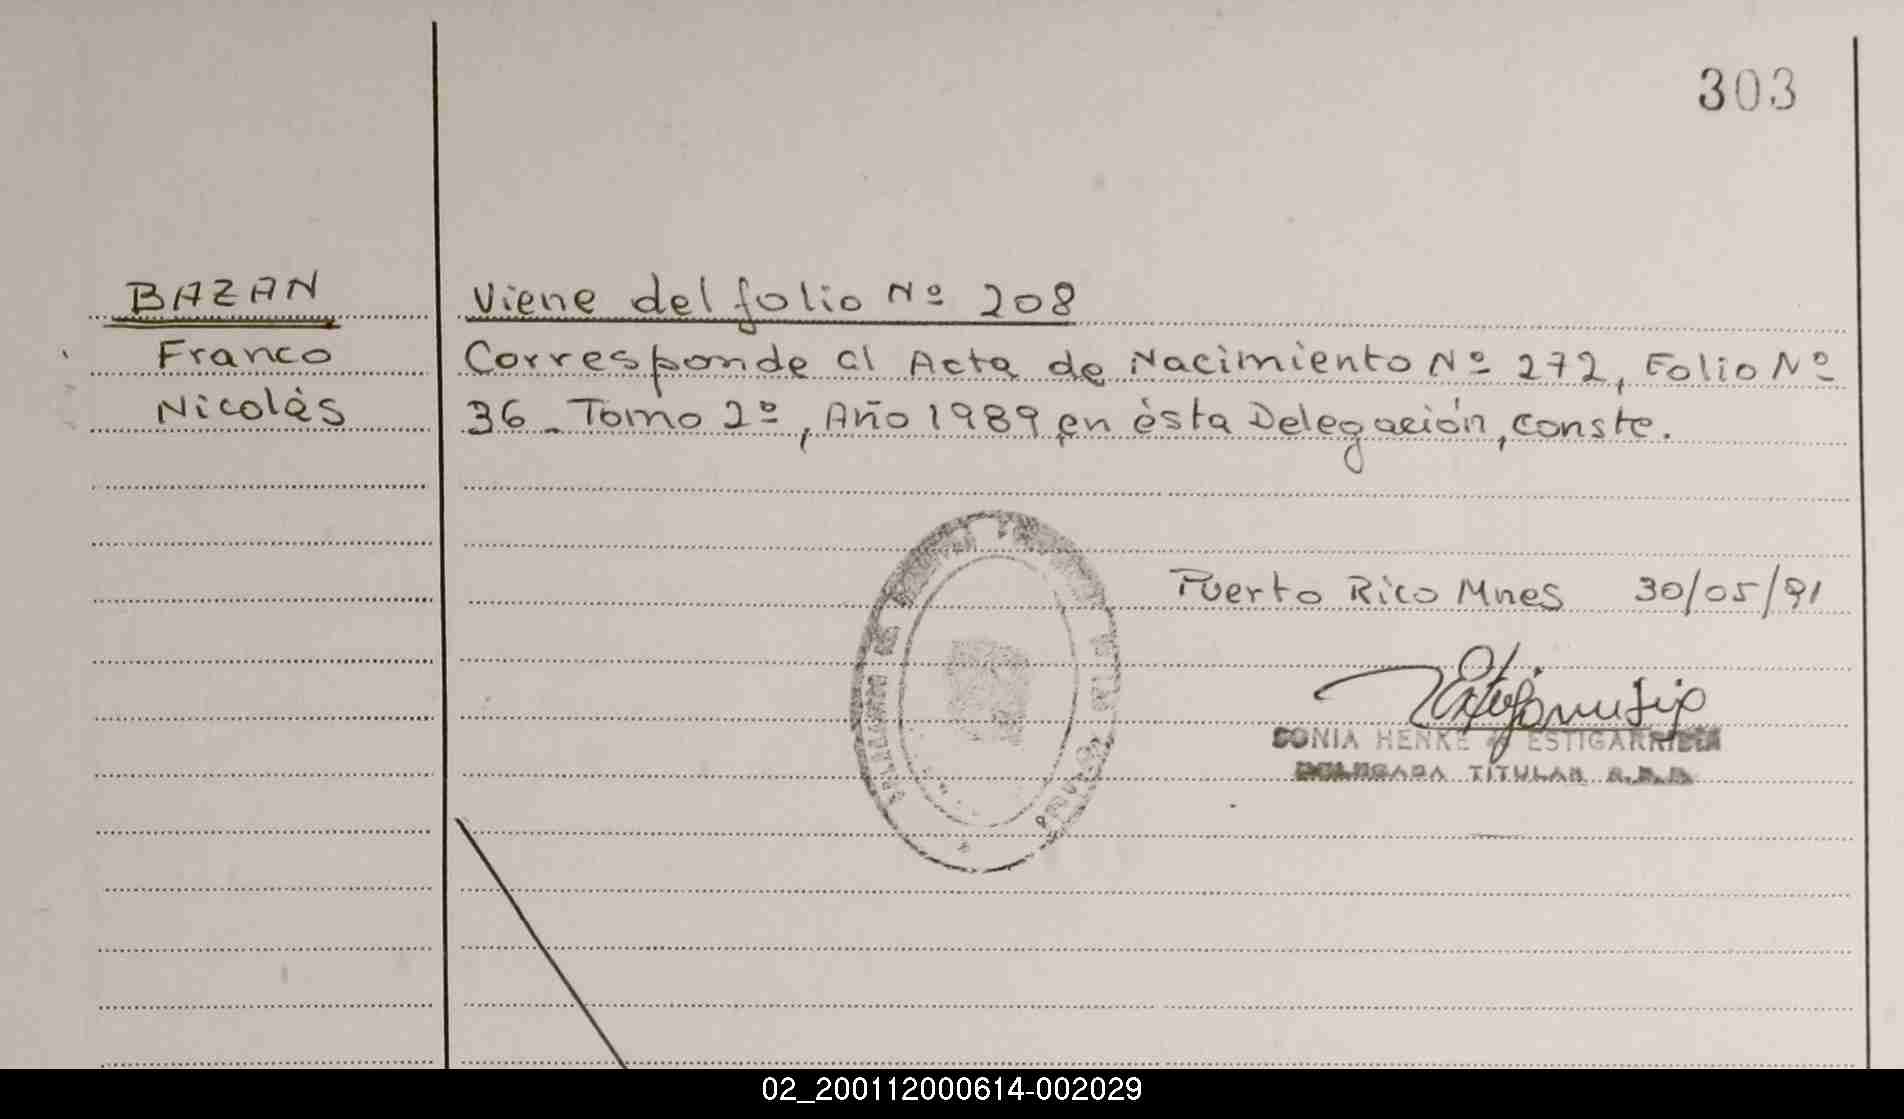 303
BAZAN
Franco
Nicolás
Viene del folio Nº 208
Corresponde al Acta de Nacimiento Nº 272, Folio Nº
36_ Tomo 2º, Año 1989 en ésta Delegación, conste.
Puerto Rico Mnes 30/05/91
SONIA HENKE de ESTIGARRIBIA
DELEGADA TITULAR
02_200112000614-002029